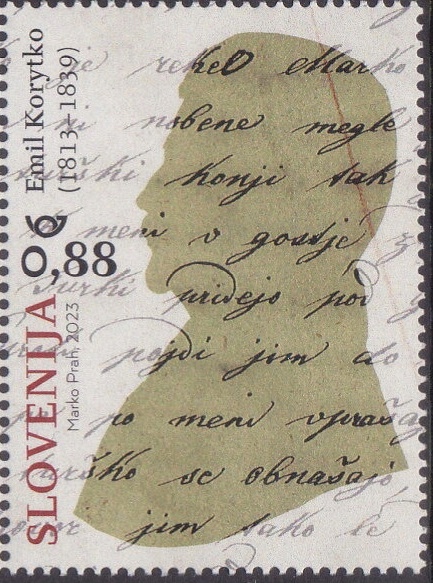 Emil Korytko
(1813–1839)
0,88
SLOVENIJA
Marko Prah, 2023
je rekel Marko
ni nobene megle
turški konji tak
meni v gostje
Turki pridejo poj
pojdi jim do
po meni vpraša
turško se obnašajo
jim tako le